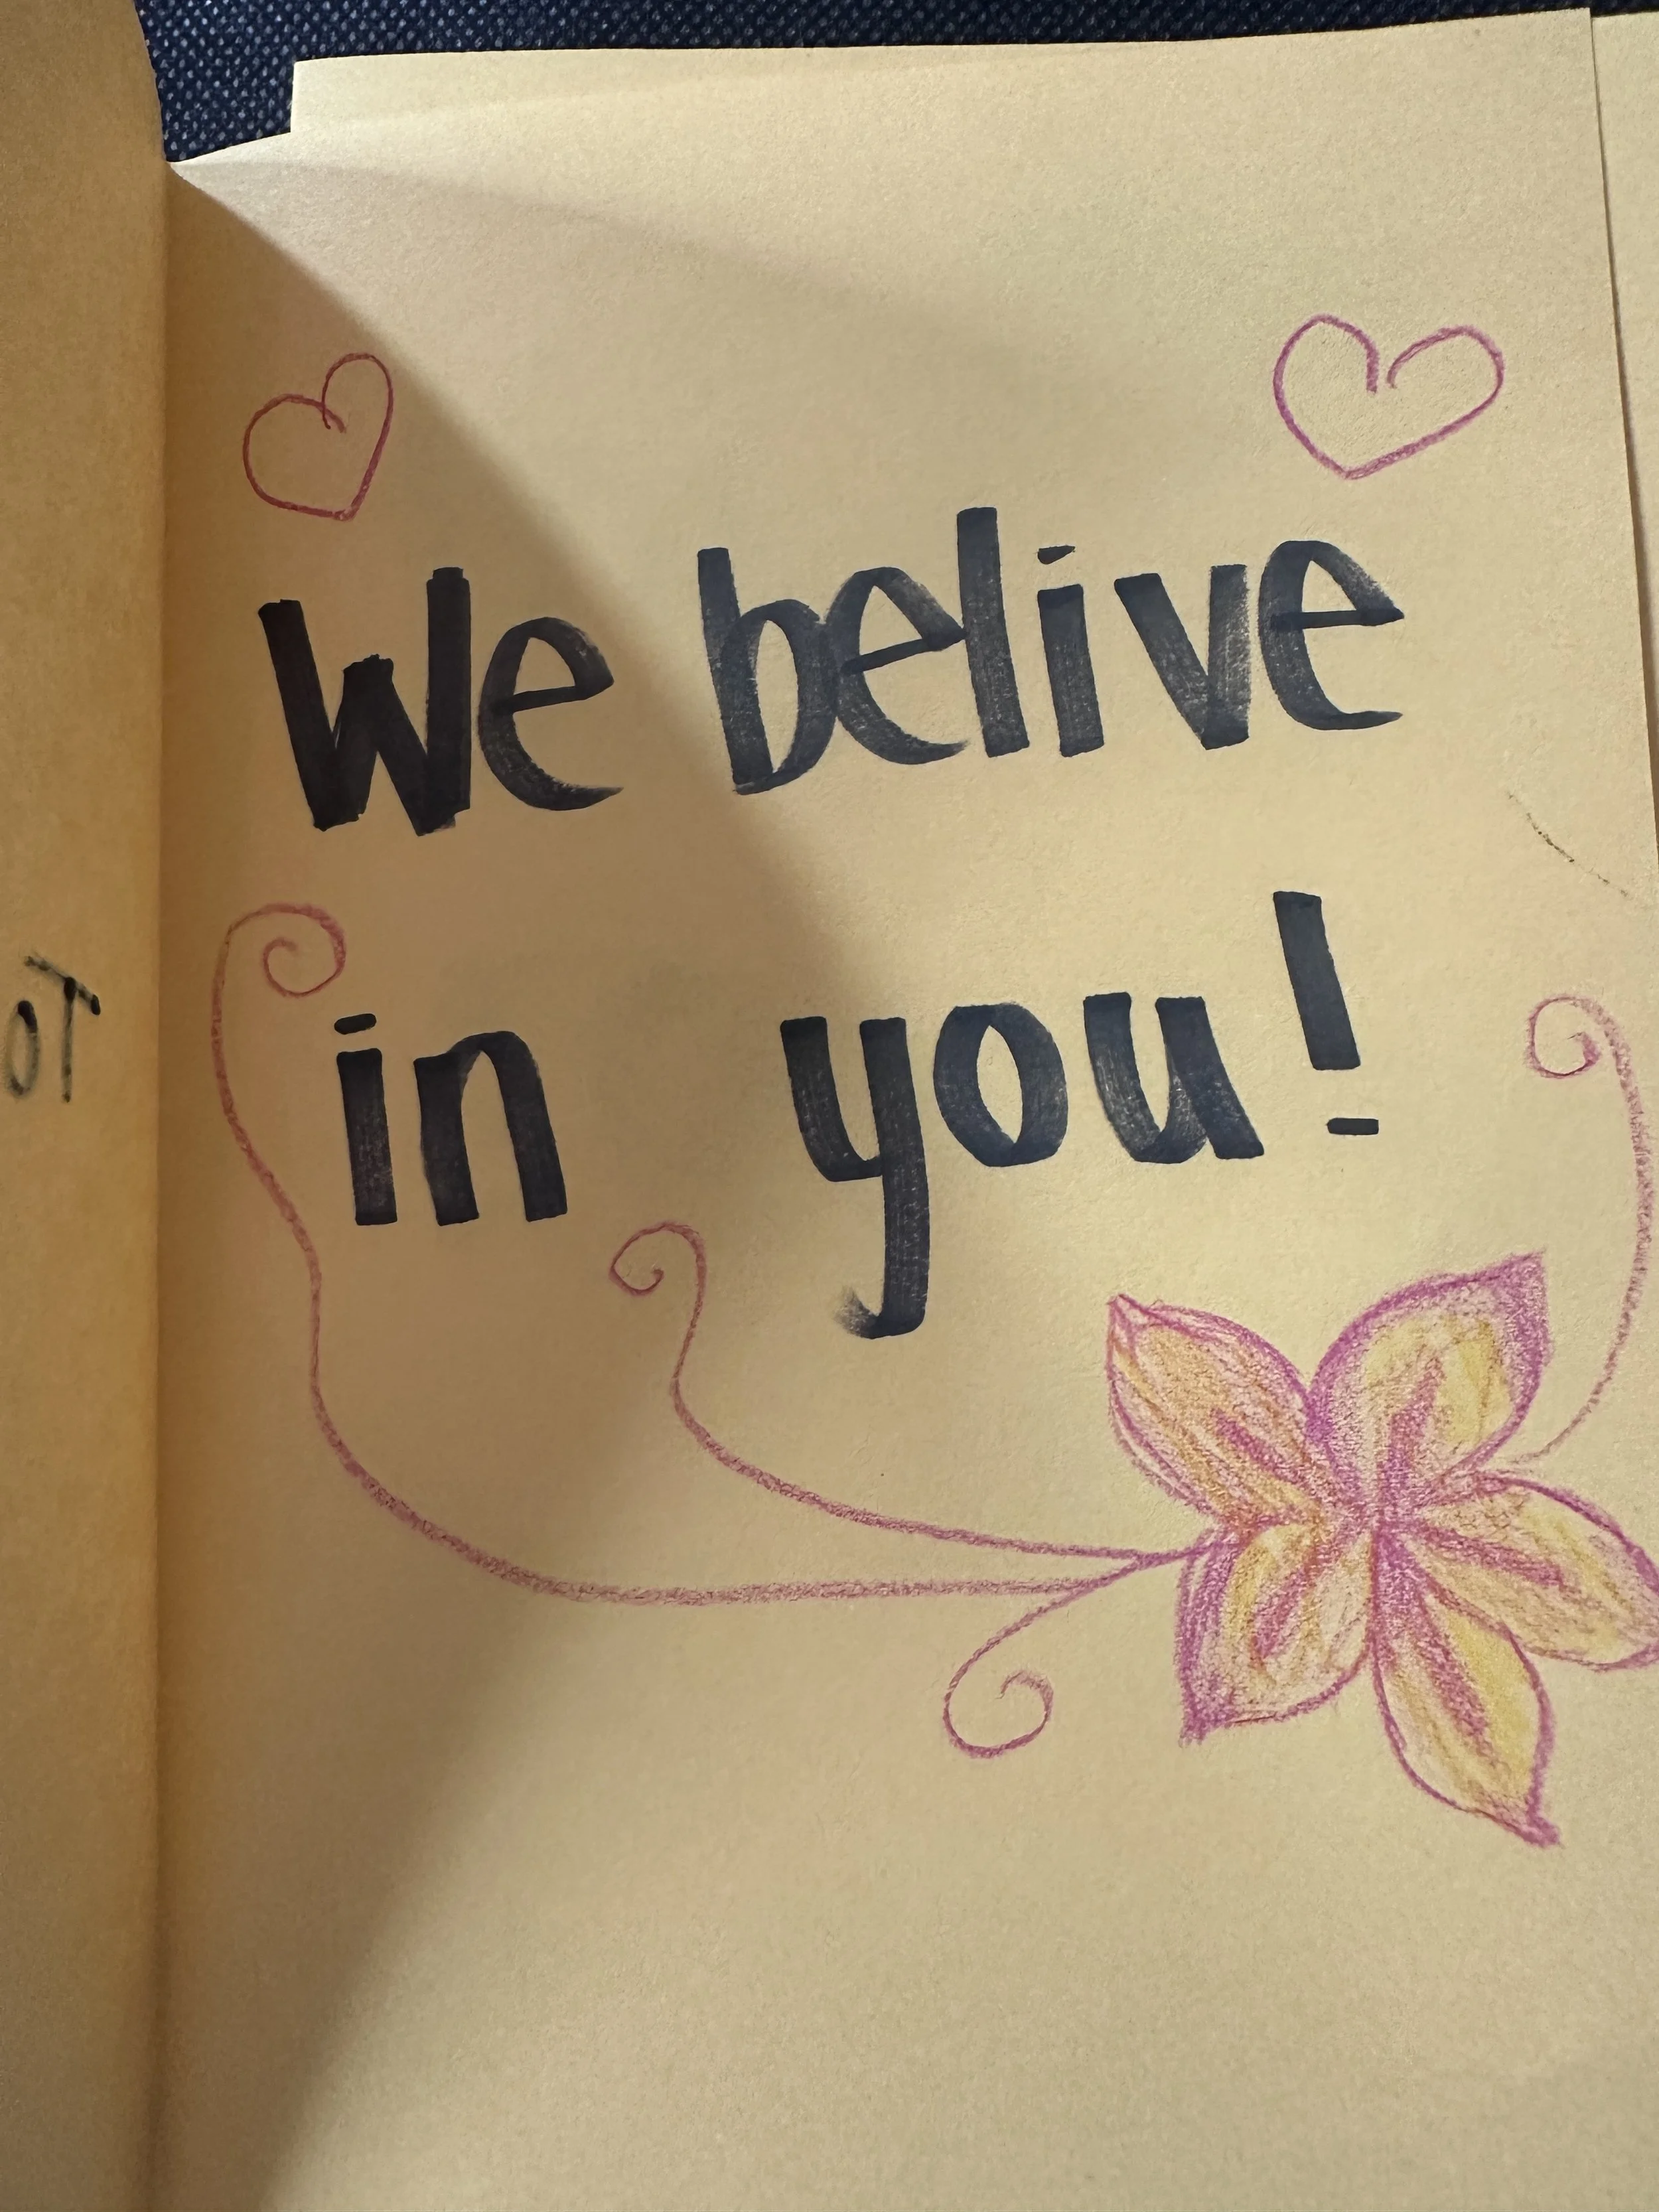 We belive
in you!